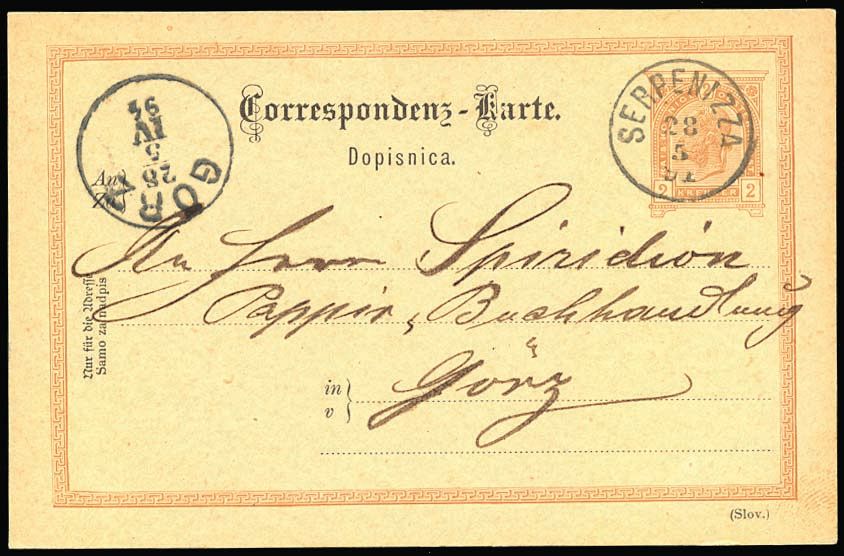 Correspondenz-Karte.
Dopisnica.
SERPENIZZA
28
5
2 KREUZER 2
GÖRZ
28
5
IV
94
An
An Herrn Spiridión
Pappir, Buchhandlung
in
v
Görz
Nur für die Adresse
Samo za nadpis
(Slov.)